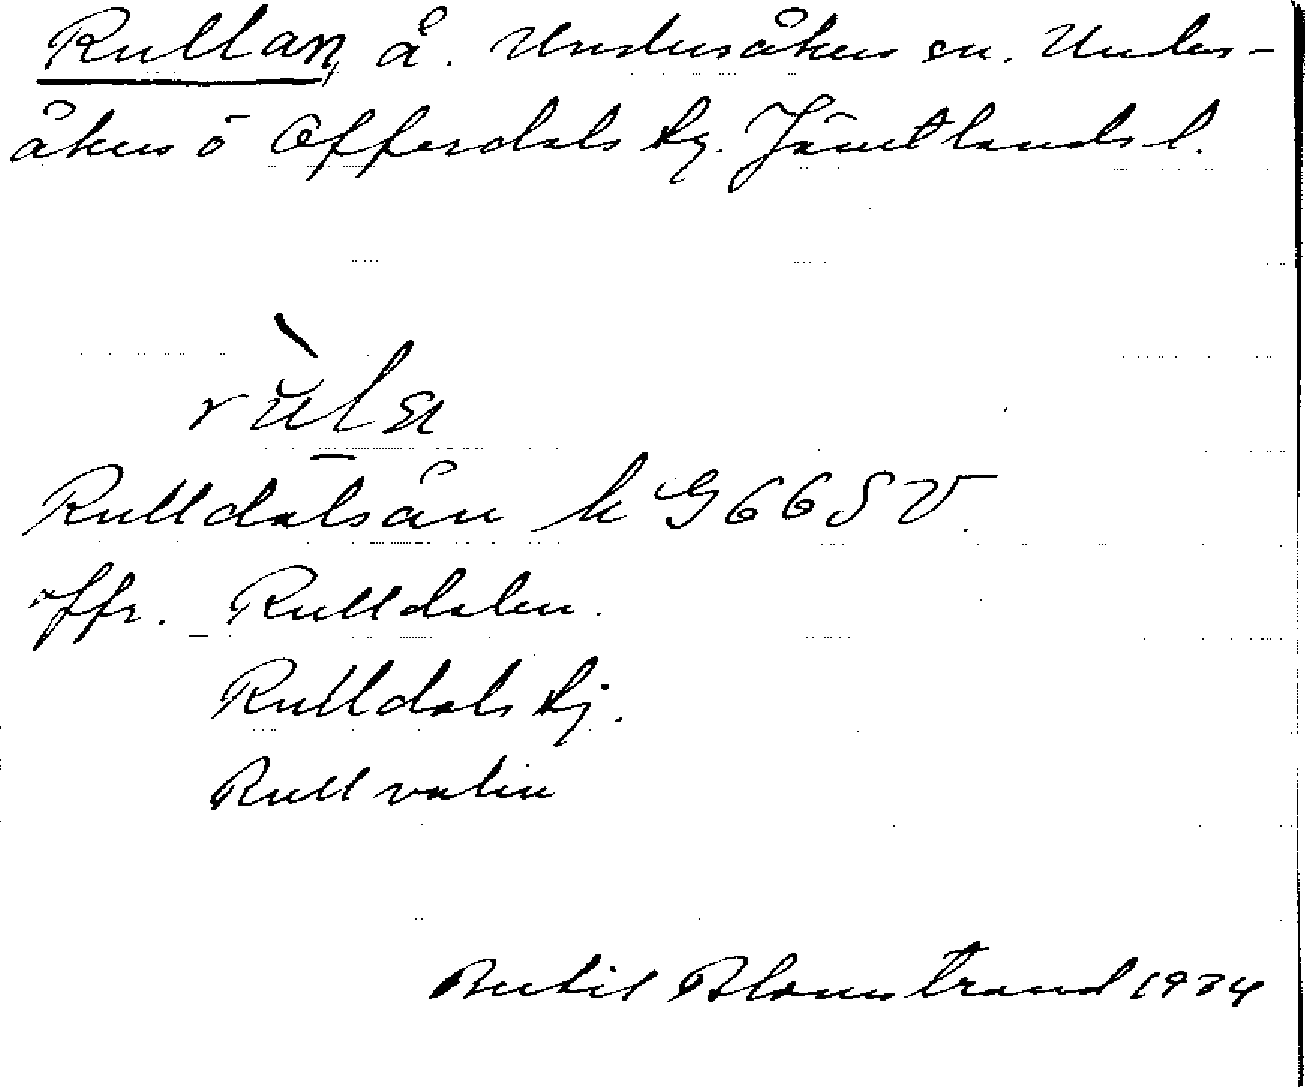 Rullan, å. Undersåkers sn. Unders-
åkers o Offerdals tg. Jämtlands l.
Rulldalsån k G 66 S V.
Jfr. Rulldalen.
Rulldals tj.
Rullvalen
Bertil Blomstrand 1934